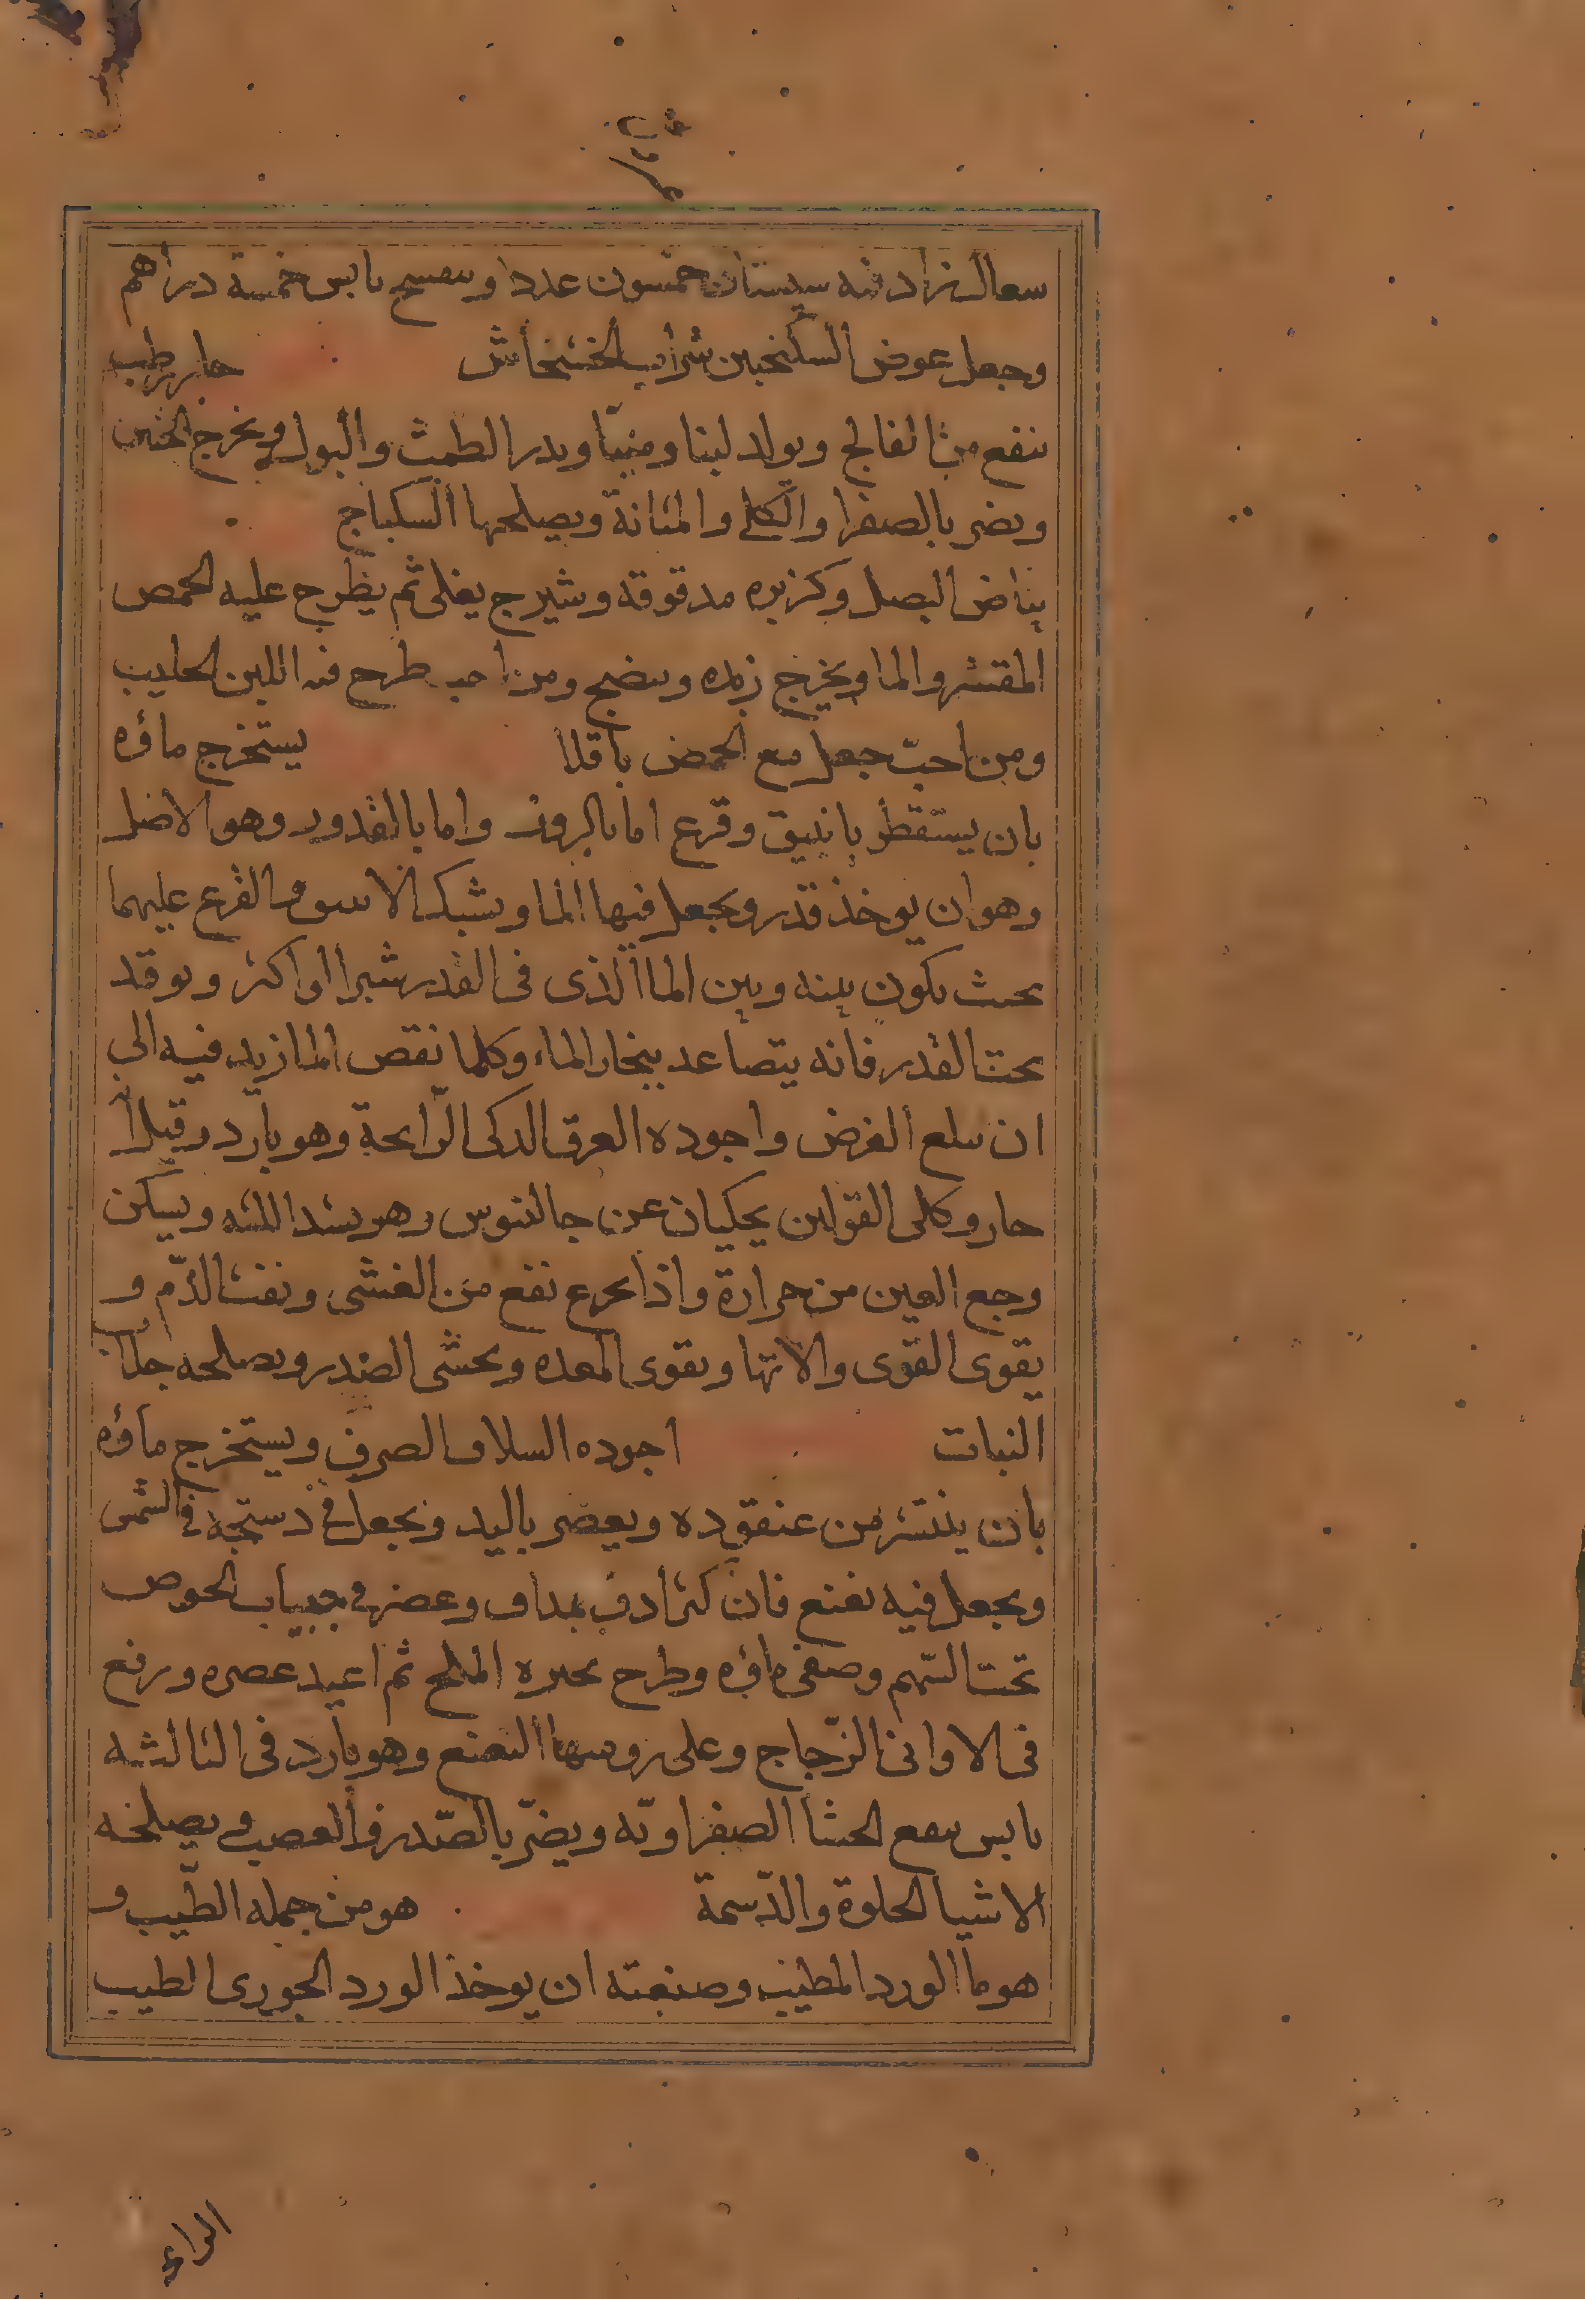 سعال زاد فيه سبستان خمسون عددا وبنفسج يابس خمسة دراهم
وجعل عوض السكنجبين شراب الخشخاش حار رطب
ينفع من الفالج ويولد لبنا ومنيّا ويدر الطمث والبول ويخرج الجنين
ويضر بالصفرا والكلى والمثانة ويصلحها السكباج
بياض البصل وكزبره مدقوقه وشيرج يغلى ثم يطرح عليه الحمص
المقشر والما ويخرج زبده وينضج ومن احب طرح فيه اللبن الحليب
ومن احبّ جعل مع الحمص باقلا يستخرج ماؤه
بان يستقطر بانبيق وقرع اما واما بالقدور وهو الافضل
وهو ان يوخذ قدر ويجعل فيها الما ويشبك الانبيق والقرع عليهما
بحيث يكون بينه وبين الما الذى فى القدر شبرا او اكثر ويوقد
تحت القدر فانه يتصاعد ببخار الماء وكلما نقص الما زيد فيه الى
ان يبلغ الغرض واجوده العرق الذكى الرّايحة وهو بارد وقيل انه
حار وكلى القولين يحكيان عن جالينوس وهو يشد اللثه ويسكن
وجع العين من حرارة واذا تجرع نفع من الغشى ونفث الدّم و
يقوى القوى والاتها ويقوى المعده ويخشى الصدر ويصلحه جلاب
النبات اجوده السلاف الصرف ويستخرج ماؤه
بان ينتثر من عنقوده ويعصر باليد ويجعل فى دستجه فى الشمس
ويجعل فيه نعنع فان كثر ادف بمداف وعصر فى الخوص
تحت السهم وصفى ماؤه وطرح الملح ثم اعيد عصره ورفع
فى الاوانى الزّجاج وعلى روسها النعنع وهو بارد فى الثالثه
يابس ينفع الحشا الصفراويّه ويضرّ بالصّدر والعصب ويصلحه
الاشيا الحلوة والدّسمة هو من جمله الطّيب و
هو ما الورد المطيب وصنعته ان يوخذ الورد الجورى الطيب